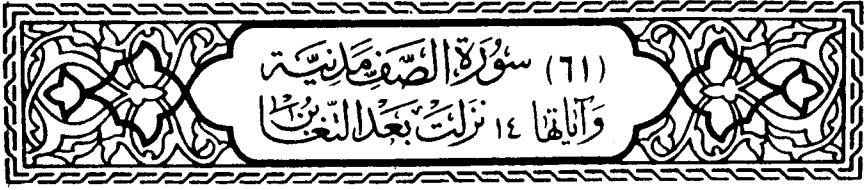 (٦١) سُورَةُ الصَّفِّ مَدَنِيَّة
وَآيَاتُهَا ١٤ نَزَلَتْ بَعْدَ التَّغَابُنِ